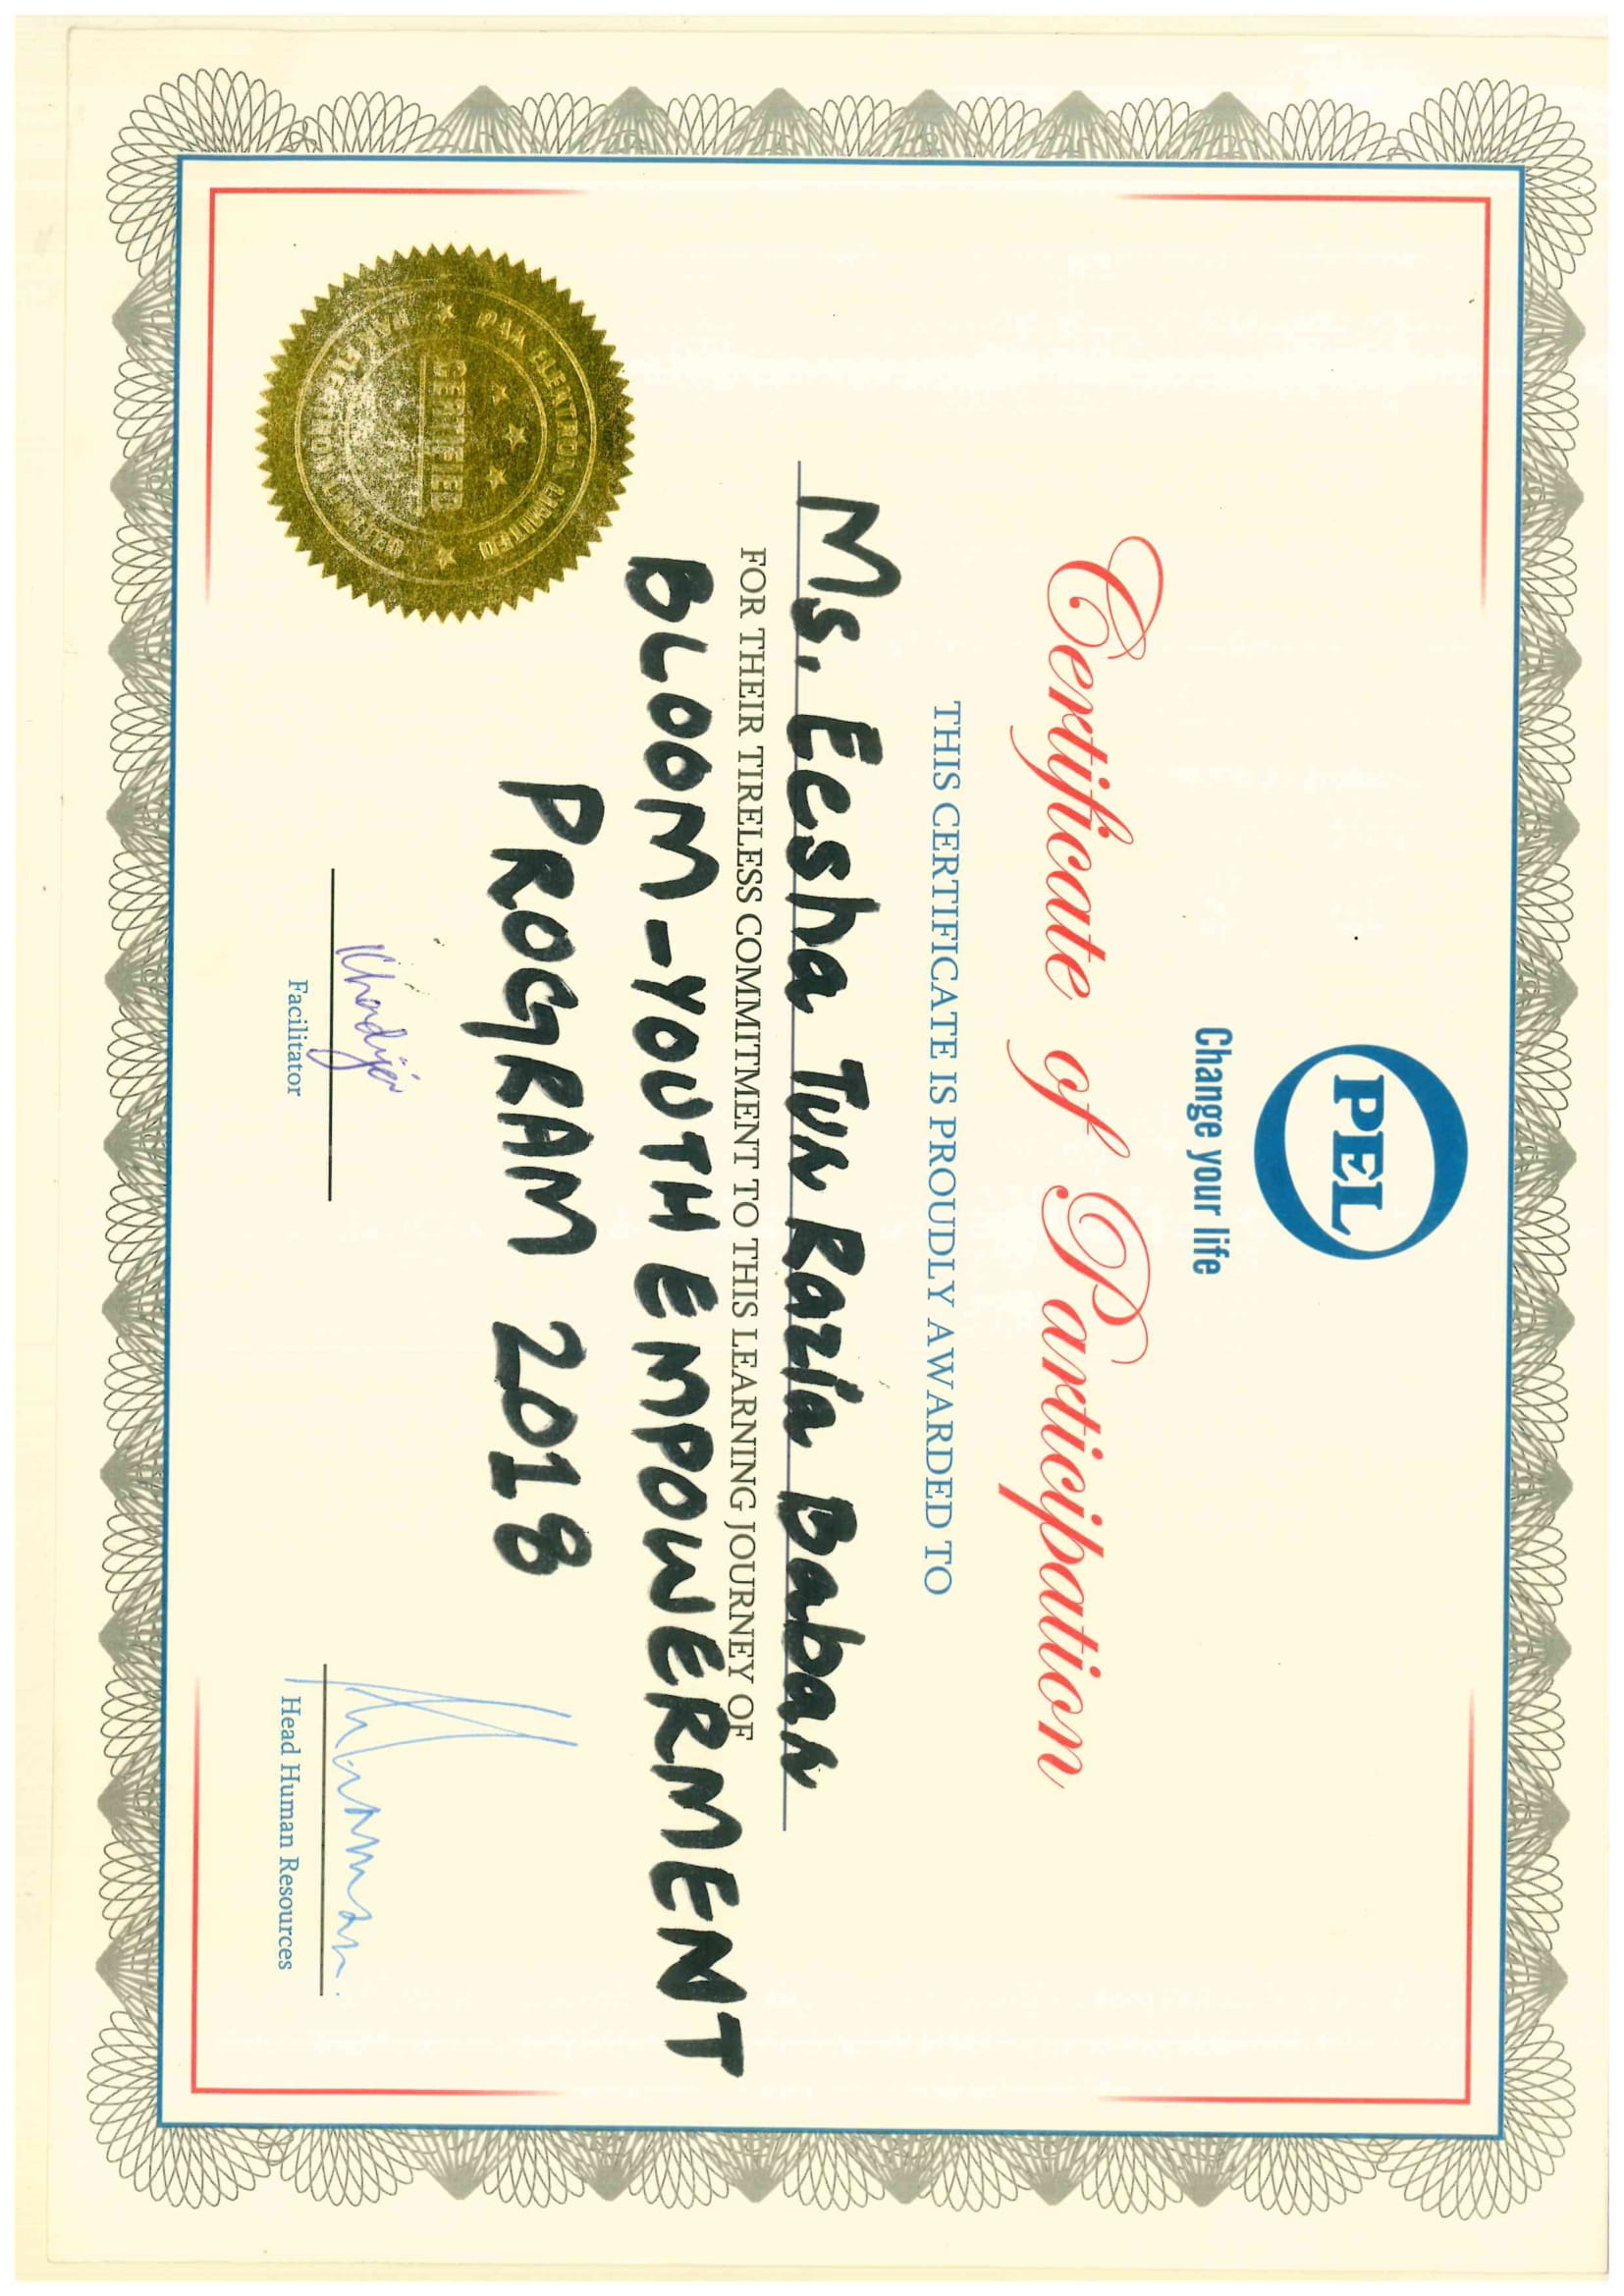 PEL
Change your life
Certificate of Participation
THIS CERTIFICATE IS PROUDLY AWARDED TO
Ms. Eesha Tur Razia Babar
FOR THEIR TIRELESS COMMITMENT TO THIS LEARNING JOURNEY OF
BLOOM-YOUTH EMPOWERMENT
PROGRAM 2018
PAK ELEKTRON LIMITED
CERTIFIED
PAK ELEKTRON LIMITED
Khadija
Facilitator
Head Human Resources